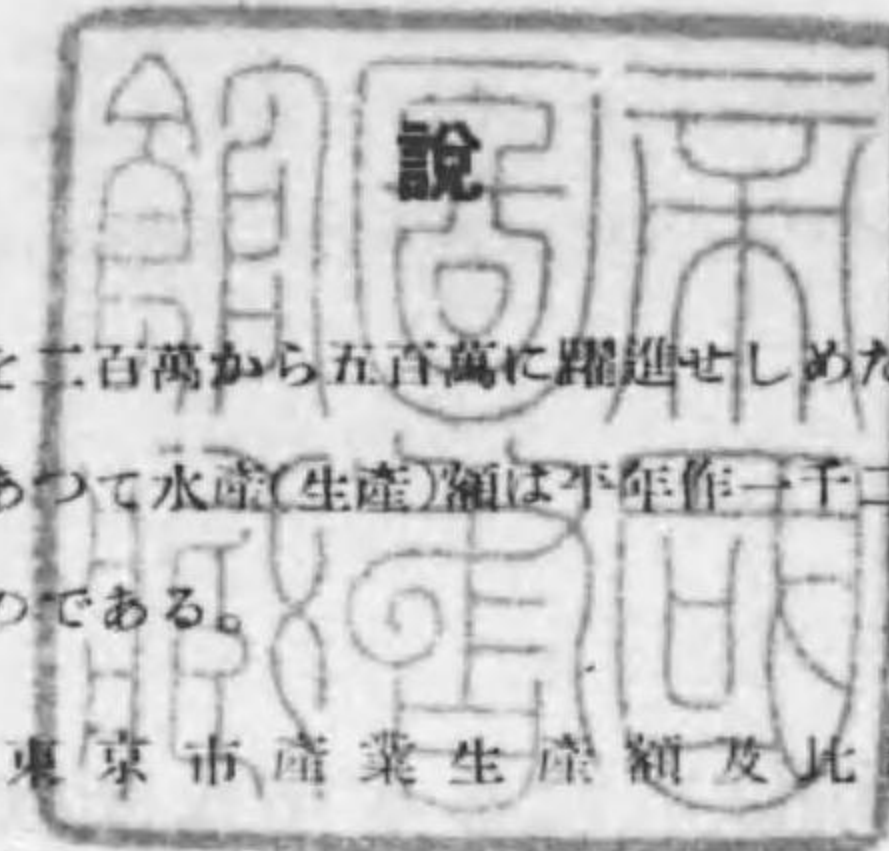 説
を二百萬から五百萬に躍進せしめた
あつて水産(生産)額は平年作一千二
のである。
東京市産業生産額及比
帝國圖書館藏